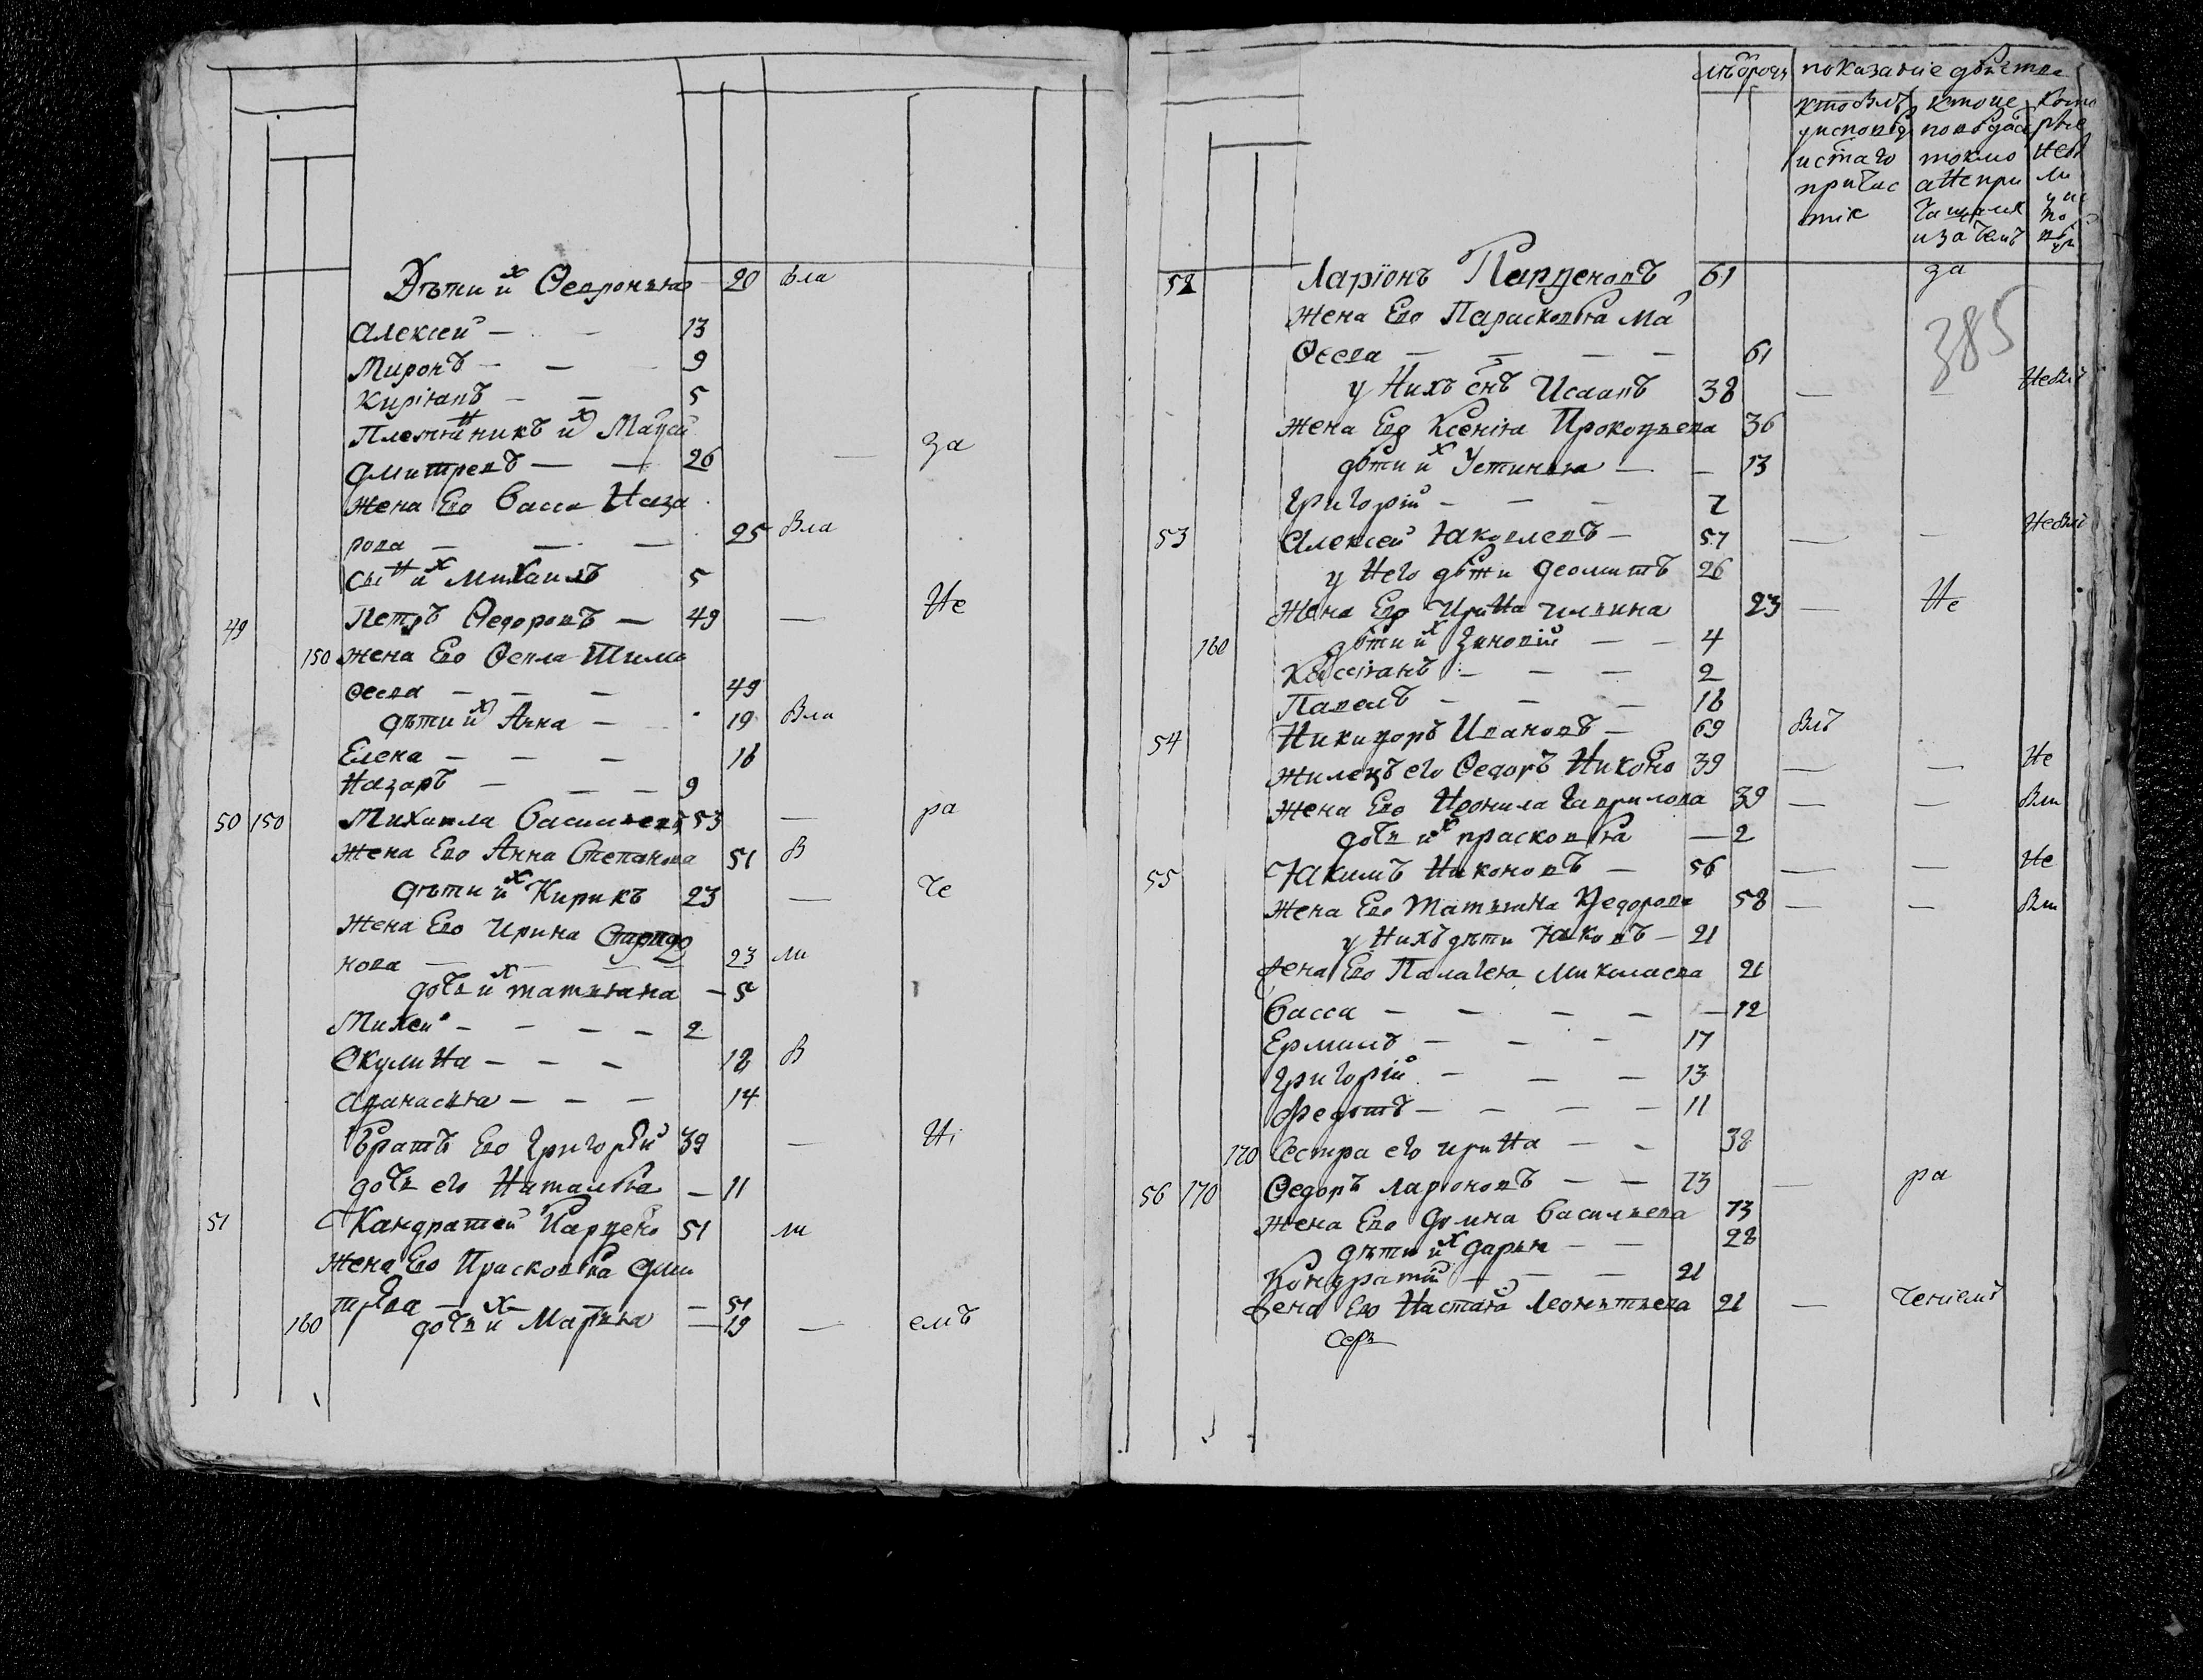 Дѣти их Ѳевронья 20 вла
Алексей — — 13
Миронъ — — 9
Кирiянъ — — 5
Племянникъ их Мацей
Дмитревъ — — 26 — за
Жена Ево Васса Наза
рова — — — 25 Вла
Сын их Михаилъ 5
49 Петръ Ѳедоровъ — 49 — Не
150 жена Ево Ѳекла Тимо
ѳеева — — — 49
дѣти их Анна — 19 Вла
Елена — — — 16
Назаръ — — — 9
50 150 Михаила Васильевъ 53 — ра
Жена Ево Анна Степанова 51 В
дѣти их Кирикъ 23 — че
Жена Ево Ирина Спиридо
нова — — — 23 ли
дочь их татьяна — 5
Михей — — — — 2
Окулина — — — 18 В
Афанасья — — — 14
Братъ Ево Григорѣй 39 — Нi
дочь его Наталья — 11
51 Кандратей Парфено 51 ли
Жена Ево Прасковья Дми
трѣва — — 51
160 дочь их Марья — 19 — емъ
лѣта показанiе
кто былъ кто ис которые
у исповѣд повѣдался не
и с&#769;таго токмо были
причас а не при у ис
тiя чащался по
и за чемъ вѣди
52 Ларiонъ Парфеновъ 61 за
385
жена Ево Парасковья Ма
Ѳеева — — — — 61
у Нихъ снъ Исаавъ 38 — Небыл
жена Его Ксенiя Прокофьева 36
дѣти их Устинья — — 13
Григорiй — — — 7
53 Алексей Яковлевъ — 57 — — Небыл
у Него дѣти Деомитъ 26
Жена Ево Ирина ильина 23 — Не
160 дѣти их Зиновiй — — 4
Кассiянъ — — — 2
Павелъ — — — 16
54 Никифоръ Ивановъ — 69 Влъ
жилецъ его Ѳедоръ Никоно 39 — — Не
жена Ево Неонила Гаврилова 39 — — Вли
дочь их прасковья — 2
55 Якимъ Никоновъ — 56 — — Не
жена Ево Татьяна Федорова 58 — — Вли
у Нихъ дѣти Яковъ — 21
жена Ево Палагея Миколаева 21
Васса — — — — — 12
Ермилъ — — — 17
Григорiй — — — 13
Федотъ — — — — 11
170 Сестра его ирина — — 38
56 170 Ѳедоръ Ларiоновъ — — 73 — ра
жена Ево Домна Васильева 73
дѣти их Дарья — — 28
Кондратiй — — — 21
жена Ево Настасiя Леонтьева 21 — ченiемъ